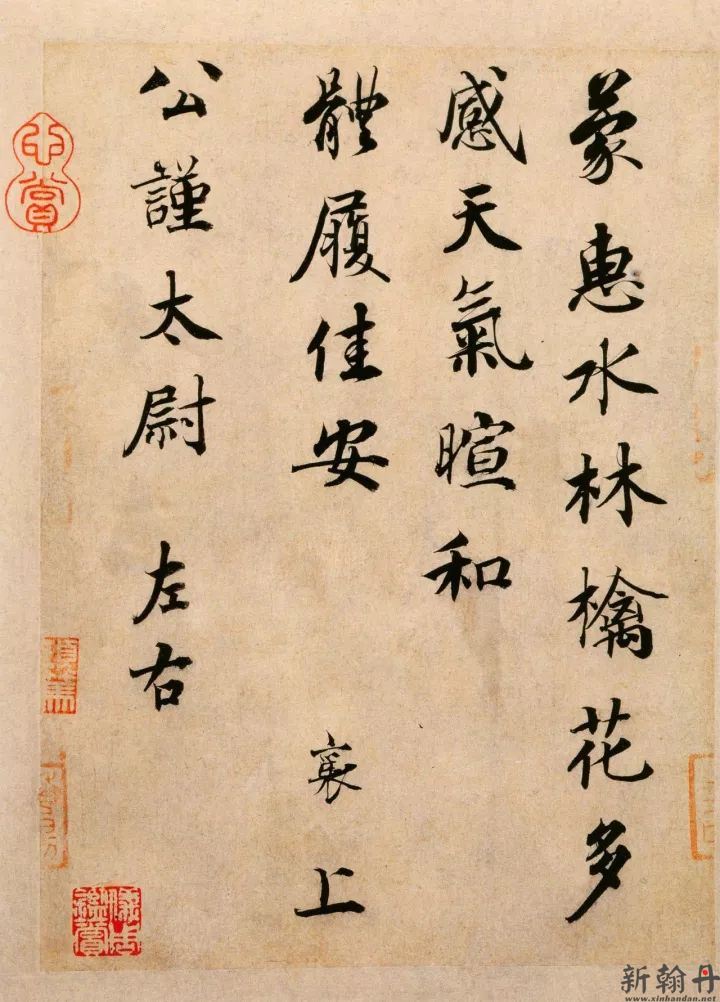 蒙惠水林檎花多
感天氣暄和
體履佳安 襄上
公謹太尉 左右
新翰丹
www.xinhandan.net